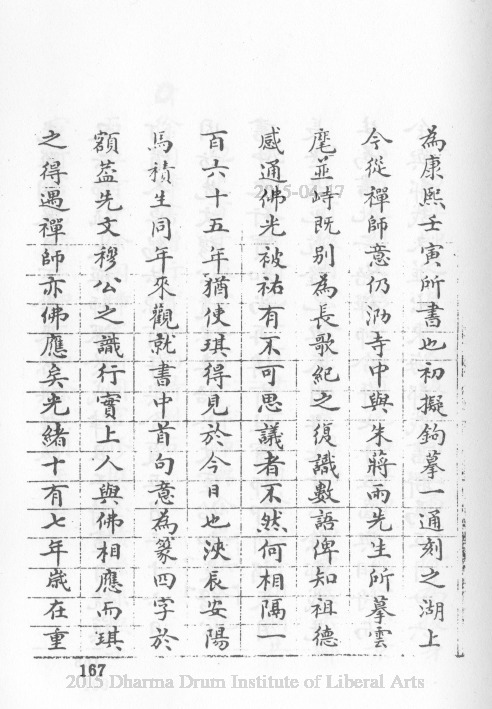 為康熙壬寅所書也初擬鉤摹一通刻之湖上
今從禪師意仍泐寺中與朱蔣兩先生所摹雲
麾並峙既别為長歌紀之復識數語俾知祖德
感通佛光被祐有不可思議者不然何相隔一
百六十五年猶使琪得見於今日也浹辰安陽
馬積生同年來觀就書中首句意為篆四字於
額葢先文穆公之識行實上人與佛相應而琪
之得遇禪師亦佛應矣光緒十有七年歲在重
167
2015-04-17
2015 Dharma Drum Institute of Liberal Arts